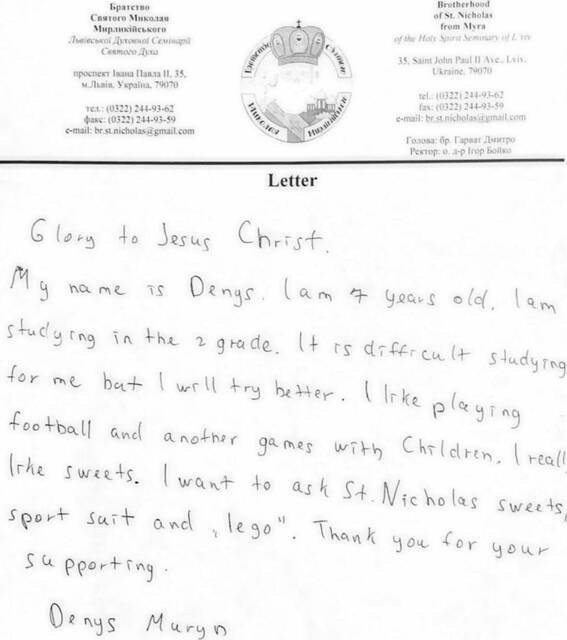 Братство
Святого Миколая
Мирликійського
Львівської Духовної Семінарії
Святого Духа
проспект Івана Павла ІІ, 35,
м.Львів, Україна, 79070
тел.: (0322) 244-93-62
факс: (0322) 244-93-59
e-mail: br.st.nicholas@gmail.com
Brotherhood
of St. Nicholas
from Myra
of the Holy Spirit Seminary of L'viv
35, Saint John Paul II Ave., Lviv,
Ukraine, 79070
tel.: (0322) 244-93-62
fax: (0322) 244-93-59
e-mail: br.st.nicholas@gmail.com
Голова: бр. Гарват Дмитро
Ректор: о. д-р Ігор Бойко
Letter
Glory to Jesus Christ.
My name is Denys. I am 7 years old. I am
studying in the 2 grade. It is difficult studying
for me but I will try better. I like playing
football and another games with Children. I reall
like sweets. I want to ask St. Nicholas sweets,
sport suit and „lego". Thank you for your
supporting.
Denys Muryn